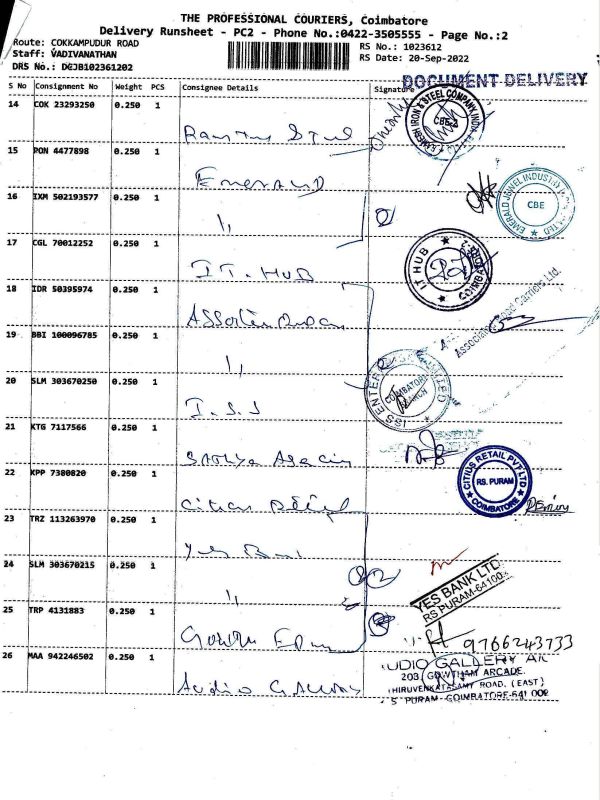 THE PROFESSIONAL COURIERS, Coimbatore
Delivery Runsheet - PC2 - Phone No.:0422-3505555 - Page No.:2
Route: COKKAMPUDUR ROAD
RS No.: 1023612
Staff: VADIVANATHAN
RS Date: 20-Sep-2022
DRS No.: DCJB102361202
DOCUMENT DELIVERY
S No Consignment No Weight PCS Consignee Details Signature
14 COK 23293250 0.250 1
RAMESH IRON & STEEL COMPANY INDIA
CBE-2
15 PON 4477898 0.250 1
Emerald
EMERALD JEWEL INDUSTRY
CBE
16 IXM 502193577 0.250 1
17 CGL 70012252 0.250 1
I.T. HUB
IT HUB
COIMBATORE-2
18 IDR 50395974 0.250 1
Associated Road Carriers Ltd.
19 BBI 100096785 0.250 1
ISS ENTER
COIMBATORE
BRANCH
20 SLM 303670250 0.250 1
I.S.S
21 KTG 7117566 0.250 1
Sathya
22 KPP 7380820 0.250 1
Citius Retail
CITIUS RETAIL PVT LTD
RS. PURAM
COIMBATORE
23 TRZ 113263970 0.250 1
Yes Bank
24 SLM 303670215 0.250 1
YES BANK LTD
RS PURAM-641002
25 TRP 4131883 0.250 1
9766243733
26 MAA 942246502 0.250 1
Audio Gallery
UDIO GALLERY
203, GOWTHAM ARCADE,
HIRUVENKATASAMY ROAD, (EAST)
S PURAM - COIMBATORE-641 002